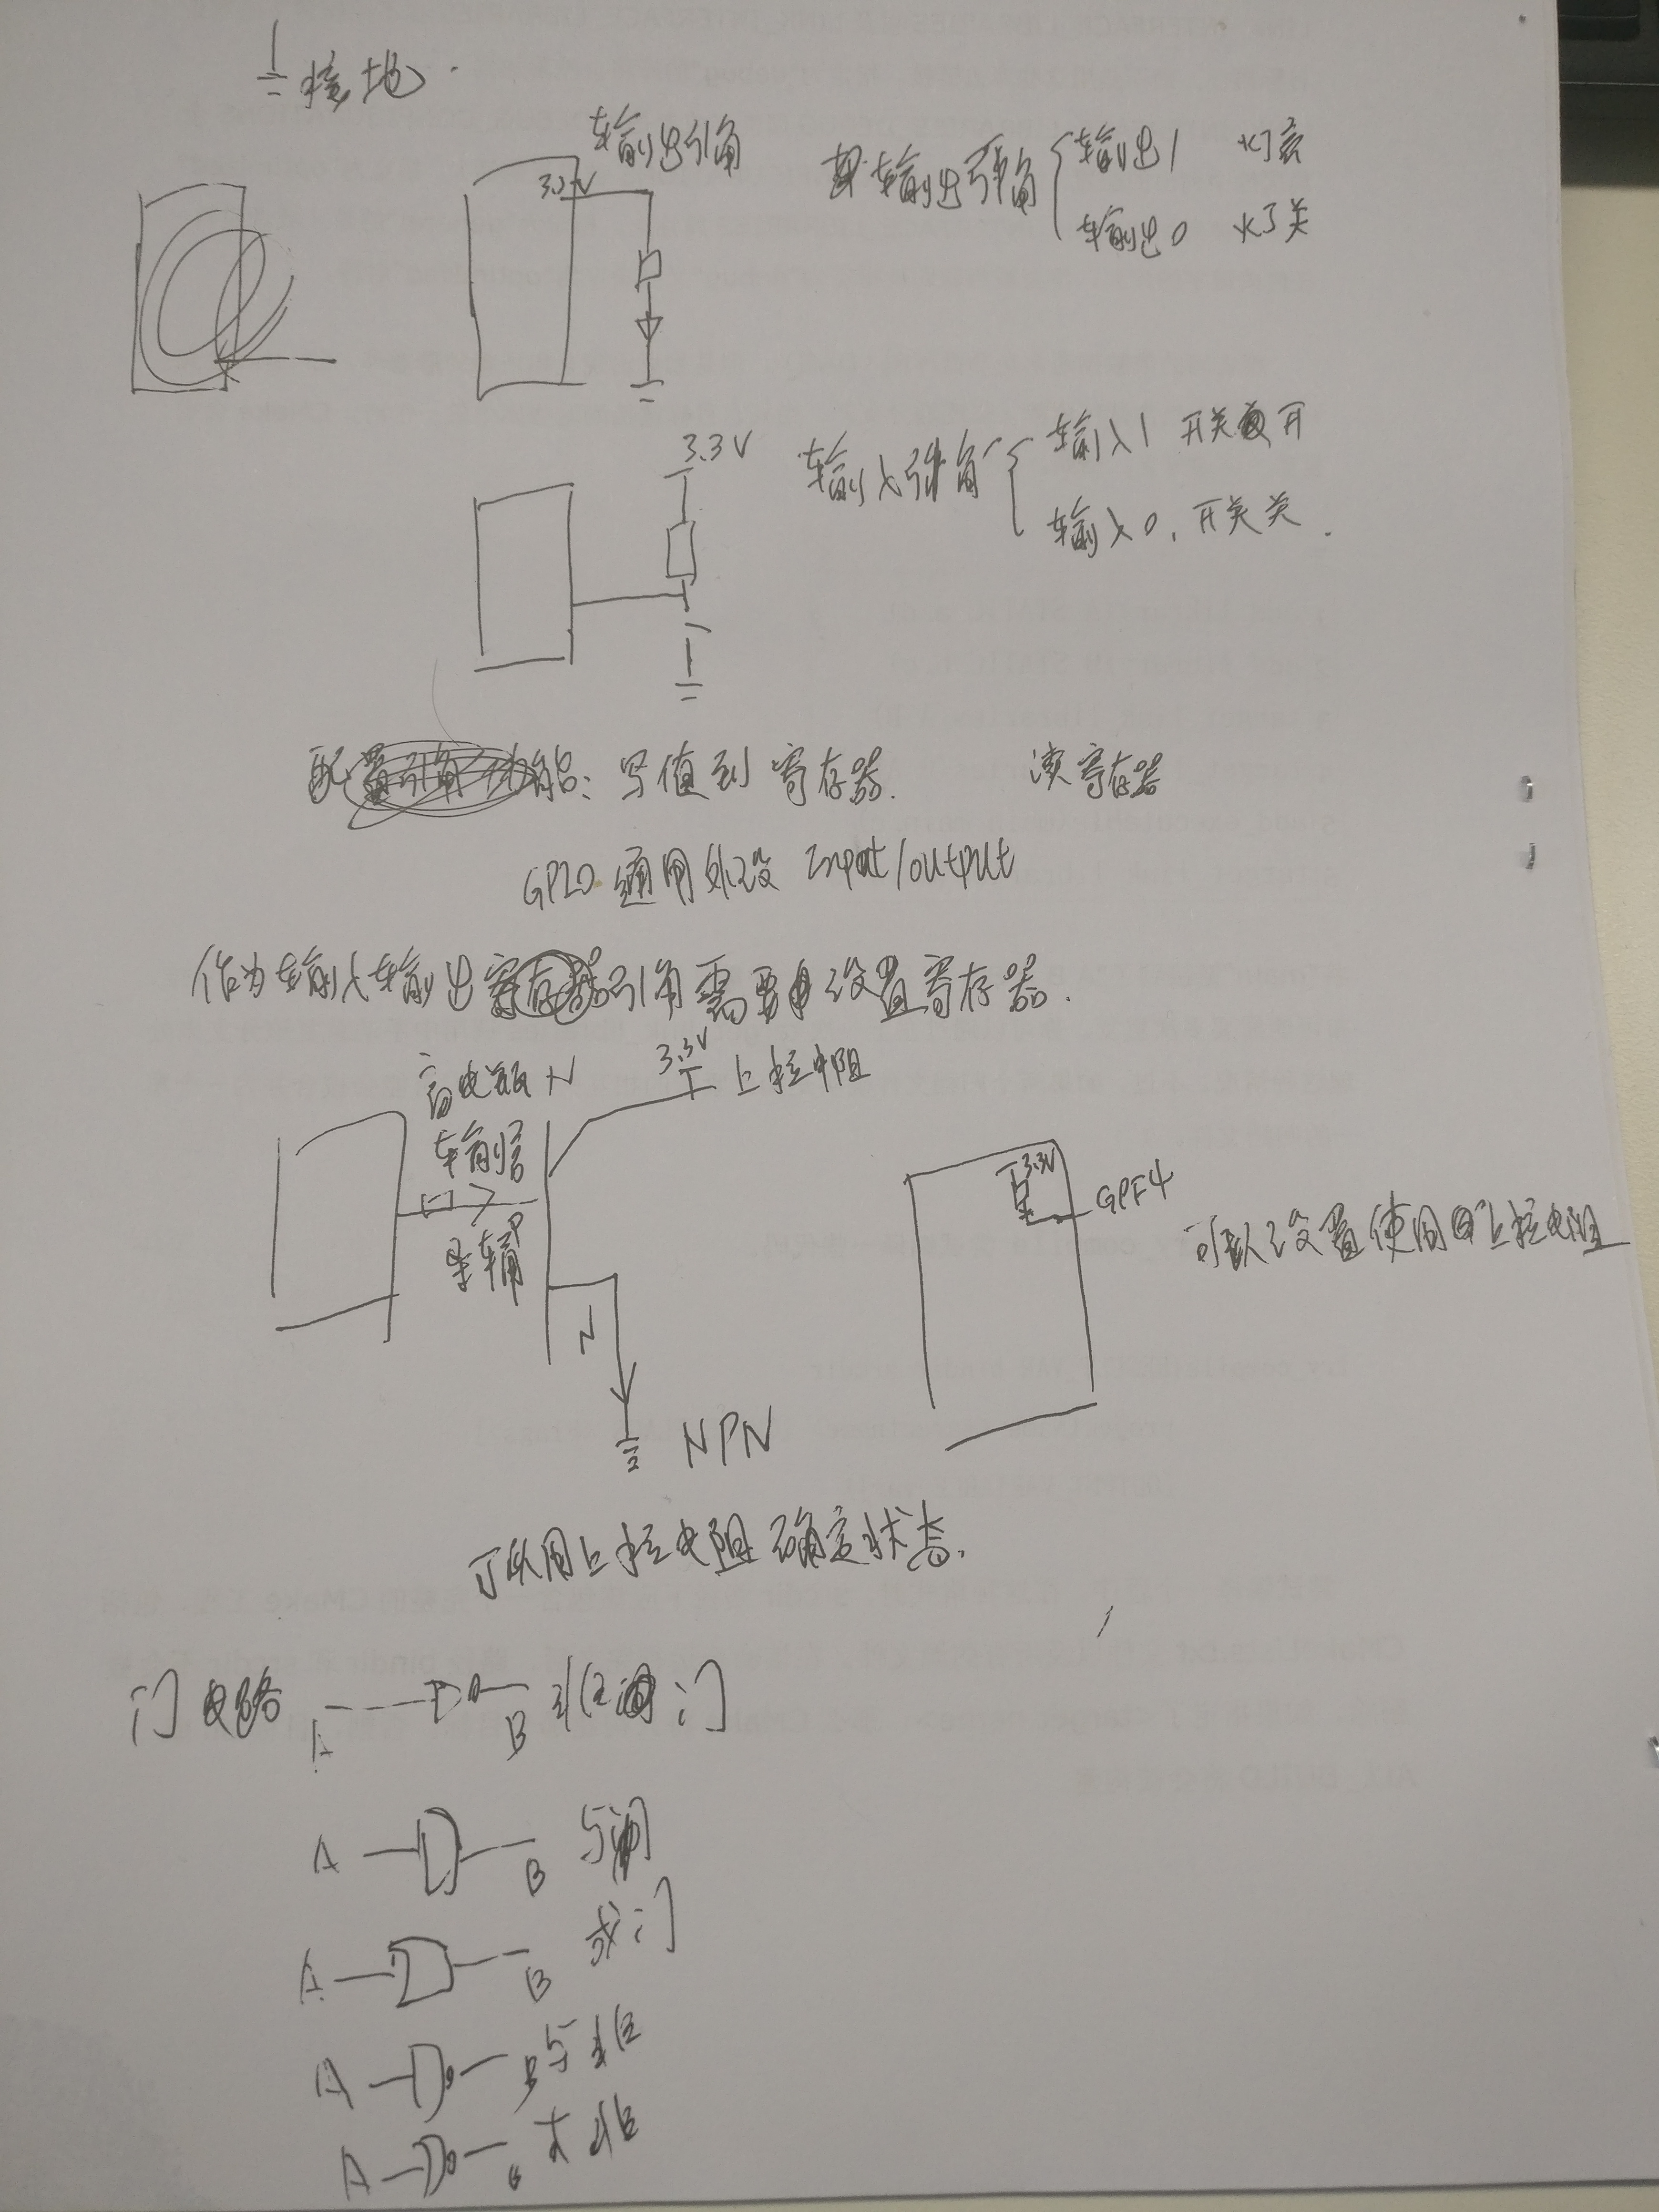 接地.
输出引角
3.3V
输出引角
输出1 灯亮
输出0 灯关
3.3V
输入引角
输入1 开关开
输入0, 开关关.
配置引角功能: 写值到寄存器. 读寄存器
GPIO 通用外设 Input/output
作为输入输出引角需要设置寄存器.
高电频 N
3.3V
上拉电阻
输
P
N
NPN
3.3V
GPF4
可以设置使用上拉电阻
可以用上拉电阻确定状态.
门电路 A B 非门
A B 与门
A B 或门
A B 与非
A 或非